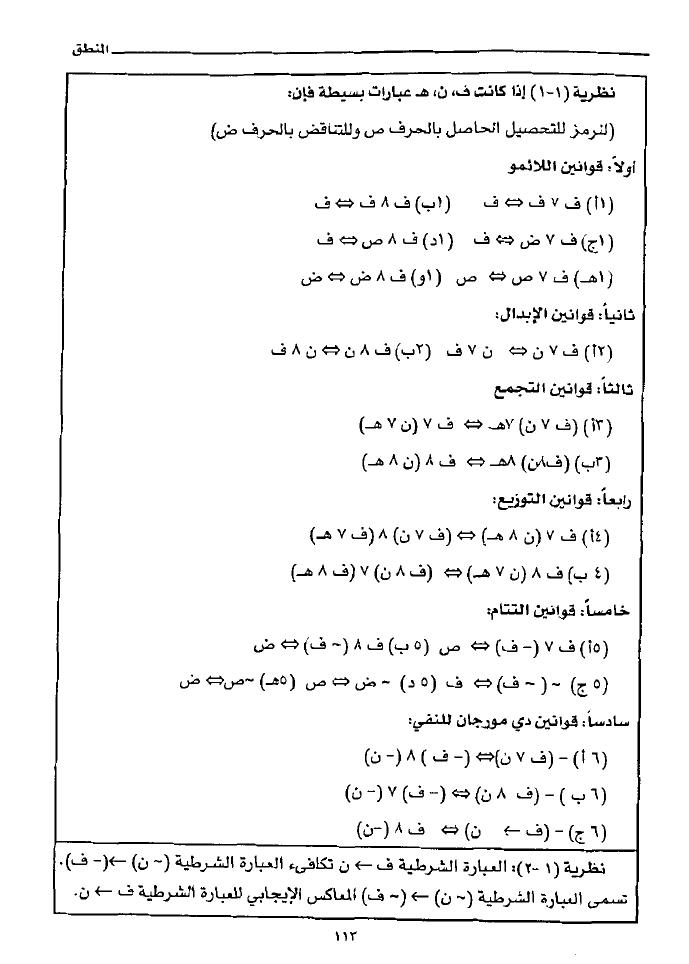 المنطق
نظرية (١-١) إذا كانت ف، ن، هـ عبارات بسيطة فإن:
(لنرمز للتحصيل الحاصل بالحرف ص وللتناقض بالحرف ض)
أولاً: قوانين اللانمو
(١أ) ف ٧ ف ⇔ ف (١ب) ف ٨ ف ⇔ ف
(١ج) ف ٧ ض ⇔ ف (١د) ف ٨ ص ⇔ ف
(١هـ) ف ٧ ص ⇔ ص (١و) ف ٨ ض ⇔ ض
ثانياً: قوانين الإبدال:
(٢أ) ف ٧ ن ⇔ ن ٧ ف (٢ب) ف ٨ ن ⇔ ن ٨ ف
ثالثاً: قوانين التجمع
(٣أ) (ف ٧ ن) ٧هـ ⇔ ف ٧ (ن ٧ هـ)
(٣ب) (ف٨ن) ٨هـ ⇔ ف ٨ (ن ٨ هـ)
رابعاً: قوانين التوزيع:
(٤أ) ف ٧ (ن ٨ هـ) ⇔ (ف ٧ ن) ٨ (ف ٧ هـ)
(٤ ب) ف ٨ (ن ٧ هـ) ⇔ (ف ٨ ن) ٧ (ف ٨ هـ)
خامساً: قوانين التتام:
(٥أ) ف ٧ (- ف) ⇔ ص (٥ ب) ف ٨ (~ ف) ⇔ ض
(٥ ج) ~ ( ~ ف) ⇔ ف (٥ د) ~ ض ⇔ ص (٥هـ) ~ص ⇔ ض
سادساً: قوانين دي مورجان للنفي:
(٦ أ) - (ف ٧ ن) ⇔ (- ف ) ٨ (- ن)
(٦ ب ) - (ف ٨ ن) ⇔ (- ف) ٧ (- ن)
(٦ ج) - (ف ← ن) ⇔ ف ٨ (-ن)
نظرية (١ -٢): العبارة الشرطية ف ← ن تكافىء العبارة الشرطية (~ ن) ←(- ف).
تسمى العبارة الشرطية (~ ن) ← (~ ف) المعاكس الإيجابي للعبارة الشرطية ف ← ن.
١١٣